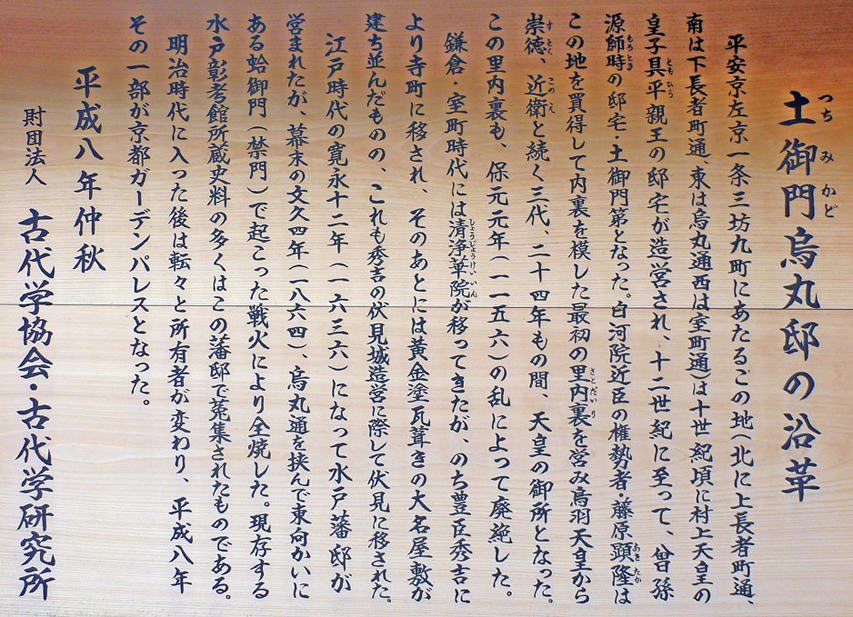 土御門烏丸邸の沿革
平安京左京一条三坊九町にあたるこの地(北に上長者町通、
南は下長者町通、東は烏丸通西は室町通)は十世紀頃に村上天皇の
皇子具平親王の邸宅が造営され、十二世紀に至って、曾孫
源師時の邸宅・土御門第となった。白河院近臣の権勢者・藤原顕隆は
この地を買得して内裏を模した最初の里内裏を営み鳥羽天皇から
崇徳、近衛と続く三代、二十四年もの間、天皇の御所となった。
この里内裏も、保元元年(一一五六)の乱によって廃絶した。
鎌倉・室町時代には清浄華院が移ってきたが、のち豊臣秀吉に
より寺町に移され、そのあとには黄金塗瓦葺きの大名屋敷が
建ち並んだものの、これも秀吉の伏見城造営に際して伏見に移された。
江戸時代の寛永十二年(一六三六)になって水戸藩邸が
営まれたが、幕末の文久四年(一八六四)、烏丸通を挟んで東向かいに
ある蛤御門(禁門)で起こった戦火により全焼した。現存する
水戸彰考館所蔵史料の多くはこの藩邸で蒐集されたものである。
明治時代に入った後は転々と所有者が変わり、平成八年
その一部が京都ガーデンパレスとなった。
平成八年仲秋
財団法人 古代学協会・古代学研究所